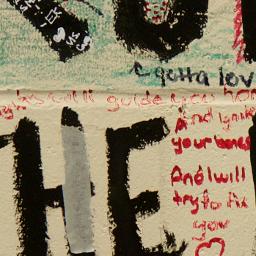 gotta lov
lights will guide you hom
THE
And ignite
your bones
And I will
try to fix
you